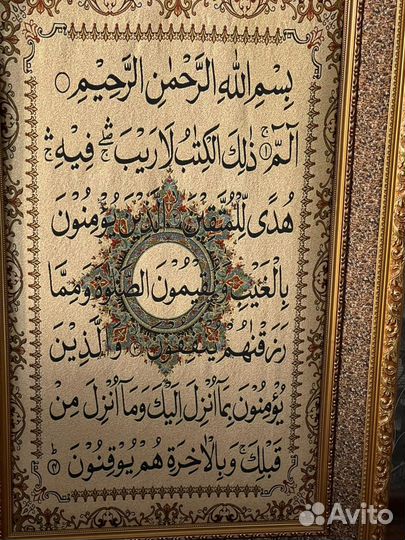 بِسْمِ اللهِ الرَّحْمٰنِ الرَّحِيْمِ ○
الٓمّٓ ۚ ﴿١﴾ ذٰلِكَ الْكِتٰبُ لَا رَيْبَ ۛۖ فِيْهِ ۛۚ
هُدًى لِّلْمُتَّقِيْنَ الَّذِيْنَ يُؤْمِنُوْنَ
بِالْغَيْبِ وَيُقِيْمُوْنَ الصَّلٰوةَ وَمِمَّا
رَزَقْنٰهُمْ يُنْفِقُوْنَ ○ وَالَّذِيْنَ
يُؤْمِنُوْنَ بِمَآ اُنْزِلَ اِلَيْكَ وَمَآ اُنْزِلَ مِنْ
قَبْلِكَ ۚ وَبِالْاٰخِرَةِ هُمْ يُوْقِنُوْنَ ﴿٤﴾
Avito